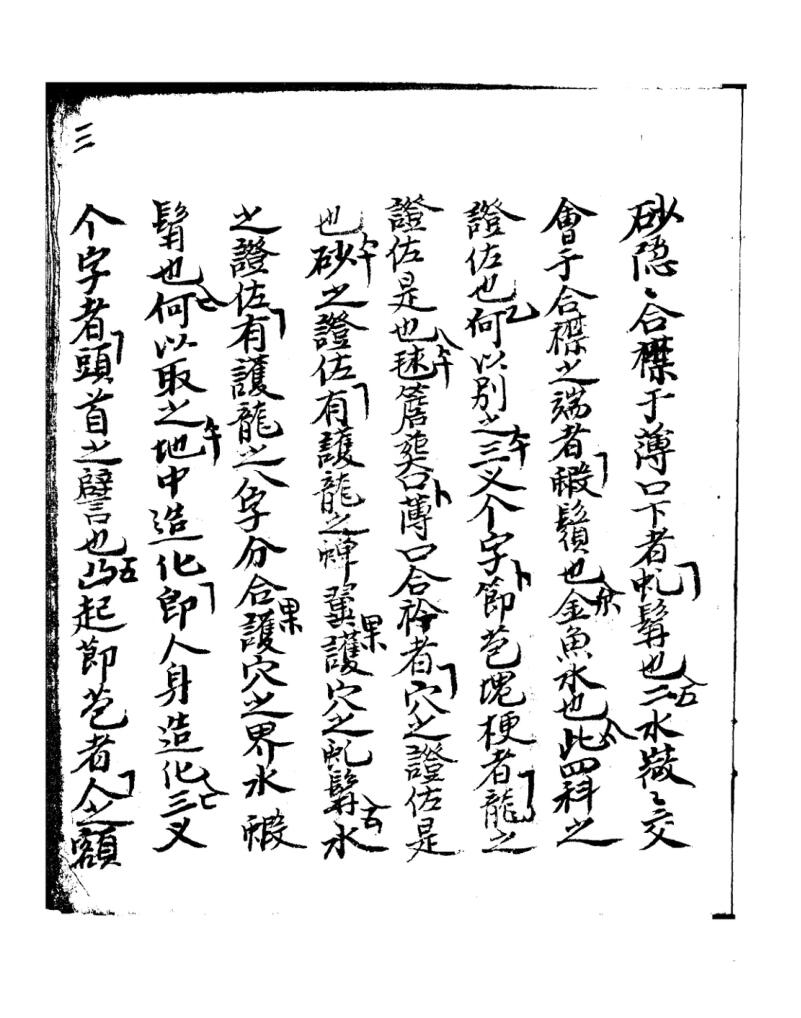 砂隐〻合襟于薄口下者虬髯也二水微〻交
會于合襟之端者蝦鬚也金魚水也此四科之
證佐也何以別之三义个字節苞塊梗者龍之
證佐是也毬簷葬口薄口合衿者穴之證佐是
也砂之證佐有護龍之蟬翼護穴之虬髯水
之證佐有護龍之八字分合護穴之界水蝦
鬚也何以取之地中造化即人身造化三义
个字者頭首之譬也凸起節苞者人之額
三